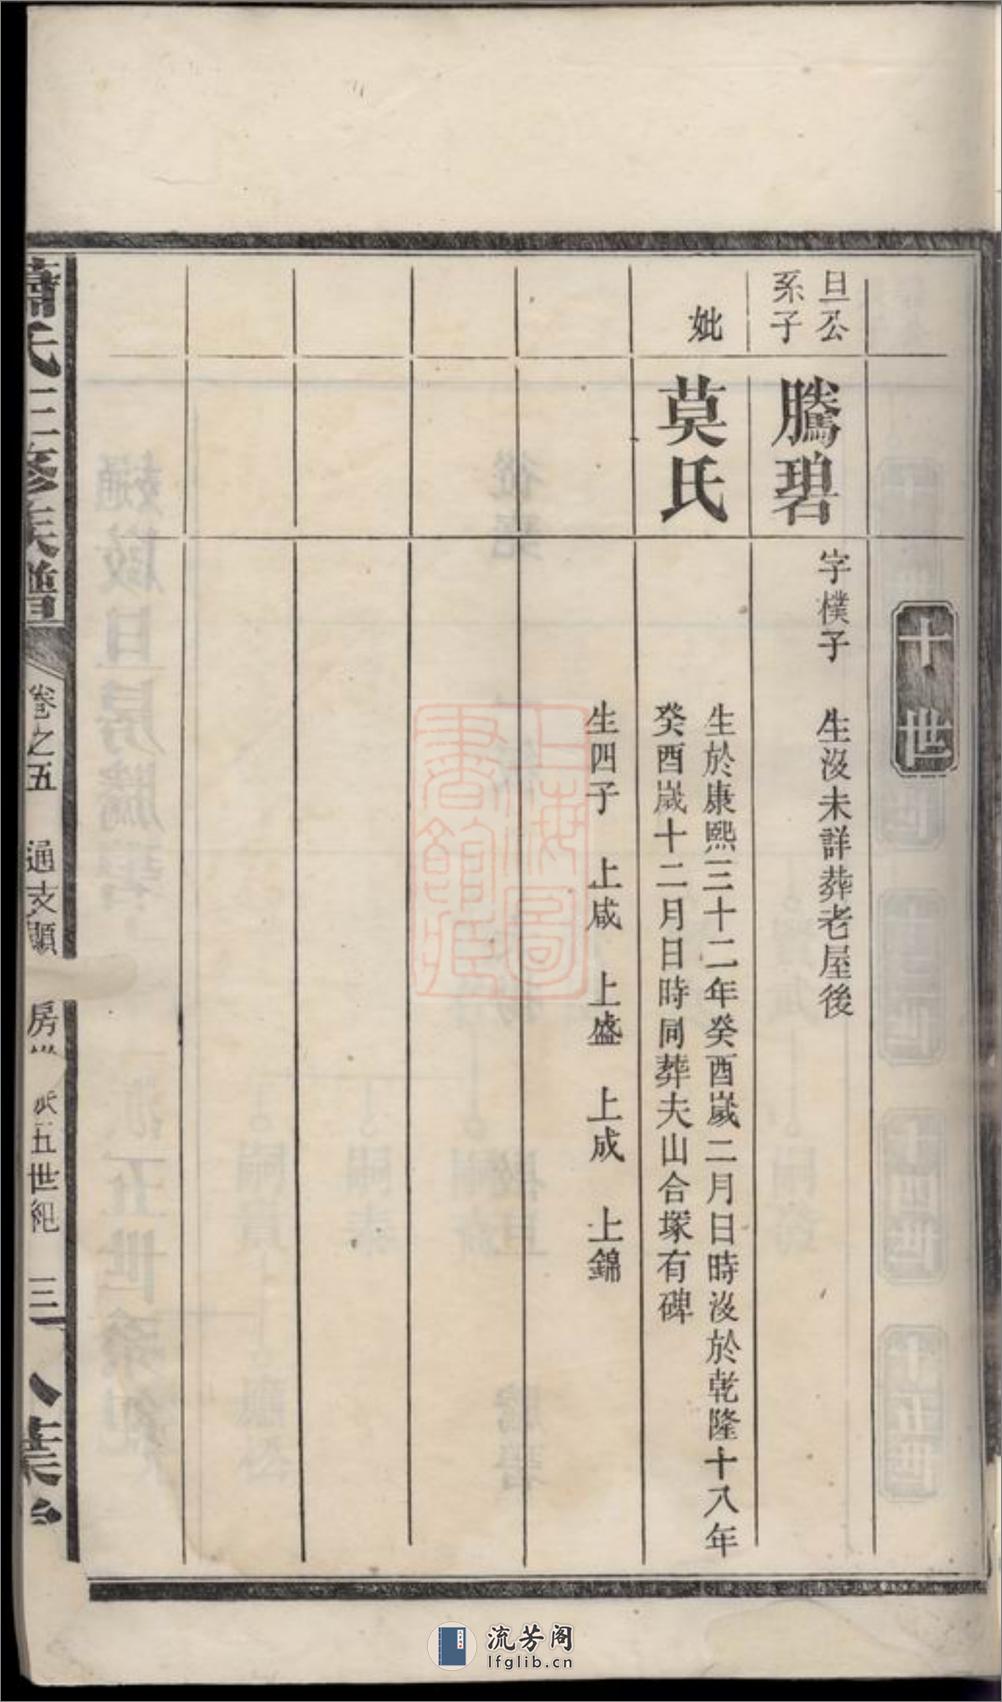 十世
旦公
系子
騰碧
字樸子 生沒未詳葬老屋後
妣
莫氏
生於康熙三十二年癸酉歲二月日時沒於乾隆十八年
癸酉歲十二月日時同葬夫山合塚有碑
生四子 上咸 上盛 上成 上錦
蕭氏三修族譜
卷之五 通支顯 房 五世紀 三
八葉
上海圖
書館藏
流芳阁
lfglib.cn